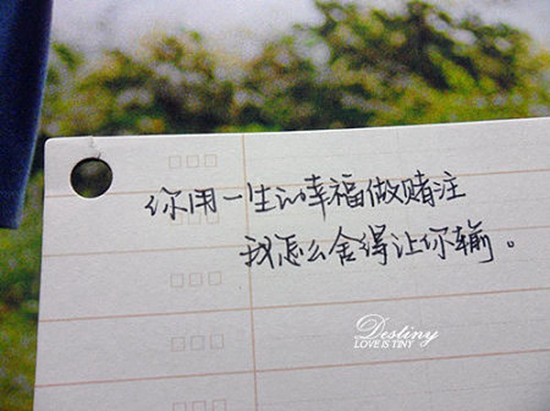 你用一生的幸福做赌注
我怎么舍得让你输。
Destiny
LOVE IS TINY